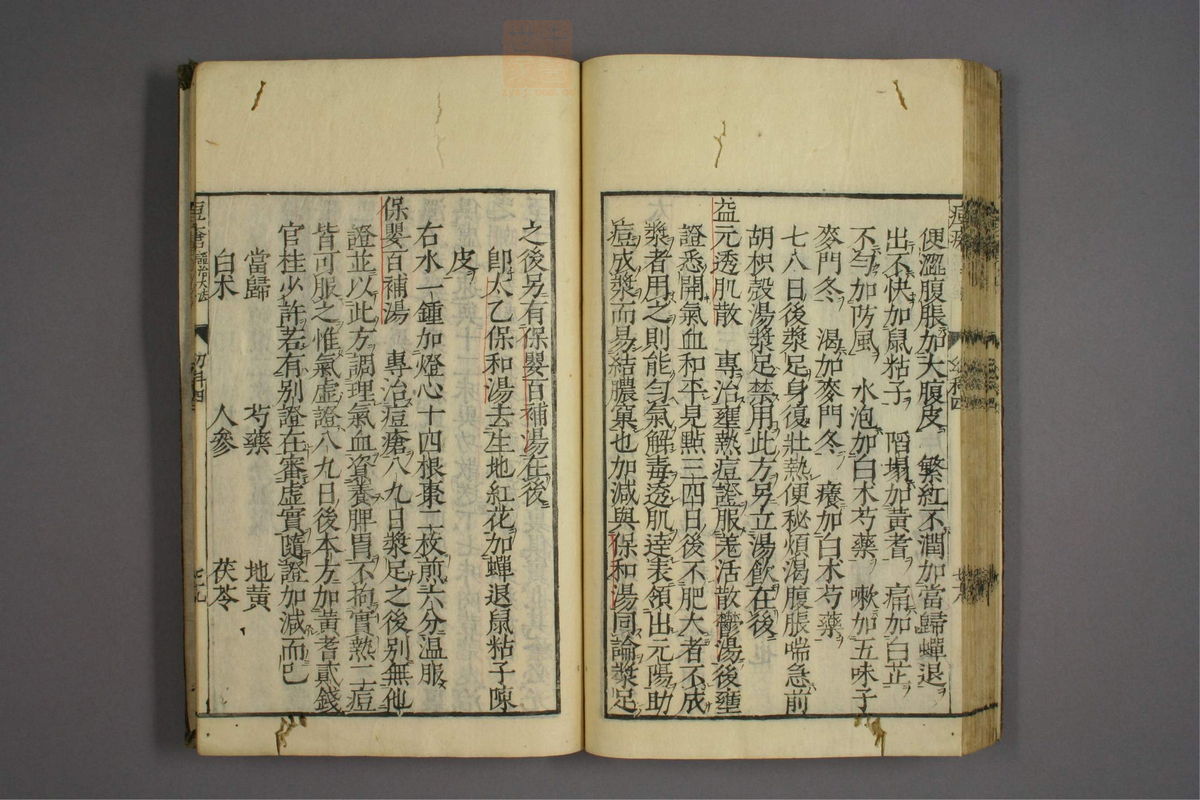 便澀腹脹加大腹皮　繁紅不潤加當歸蟬退
出不快加鼠粘子　陷塌加黃耆　痛加白芷
不勻加防風　水泡加白朮芍藥　嗽加五味子
麥門冬　渴加麥門冬　癢加白朮芍藥
七八日後漿足身復壯熱便秘煩渴腹脹喘急前
胡枳殼湯漿足禁用此方另立湯飲在後
益元透肌散　專治壅熱痘證服羌活散鬱湯後壅
證悉開氣血和平見點三四日後不肥大者不成
漿者用之則能勻氣解毒透肌達表領出元陽助
痘成漿而易結膿窠也加減與保和湯同論漿足
之後另有保嬰百補湯在後
即太乙保和湯去生地紅花加蟬退鼠粘子陳
皮
右水一鍾加燈心十四根棗二枚煎六分溫服
保嬰百補湯　專治痘瘡八九日漿足之後別無他
證並以此方調理氣血資養脾胃不拘實熱二痘
皆可服之惟氣虛證八九日後本方加黃耆貳錢
官桂少許若有別證在審虛實隨證加減而已
當歸　芍藥　地黃
白朮　人參　茯苓
痘瘡證治大法　幼科四